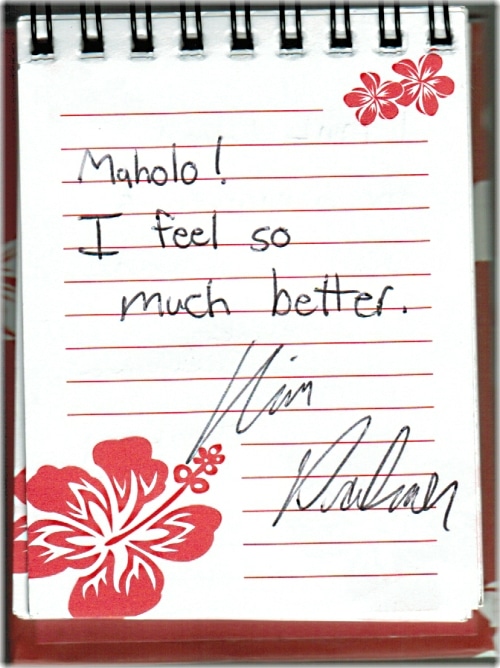 Maholo!
I feel so
much better.